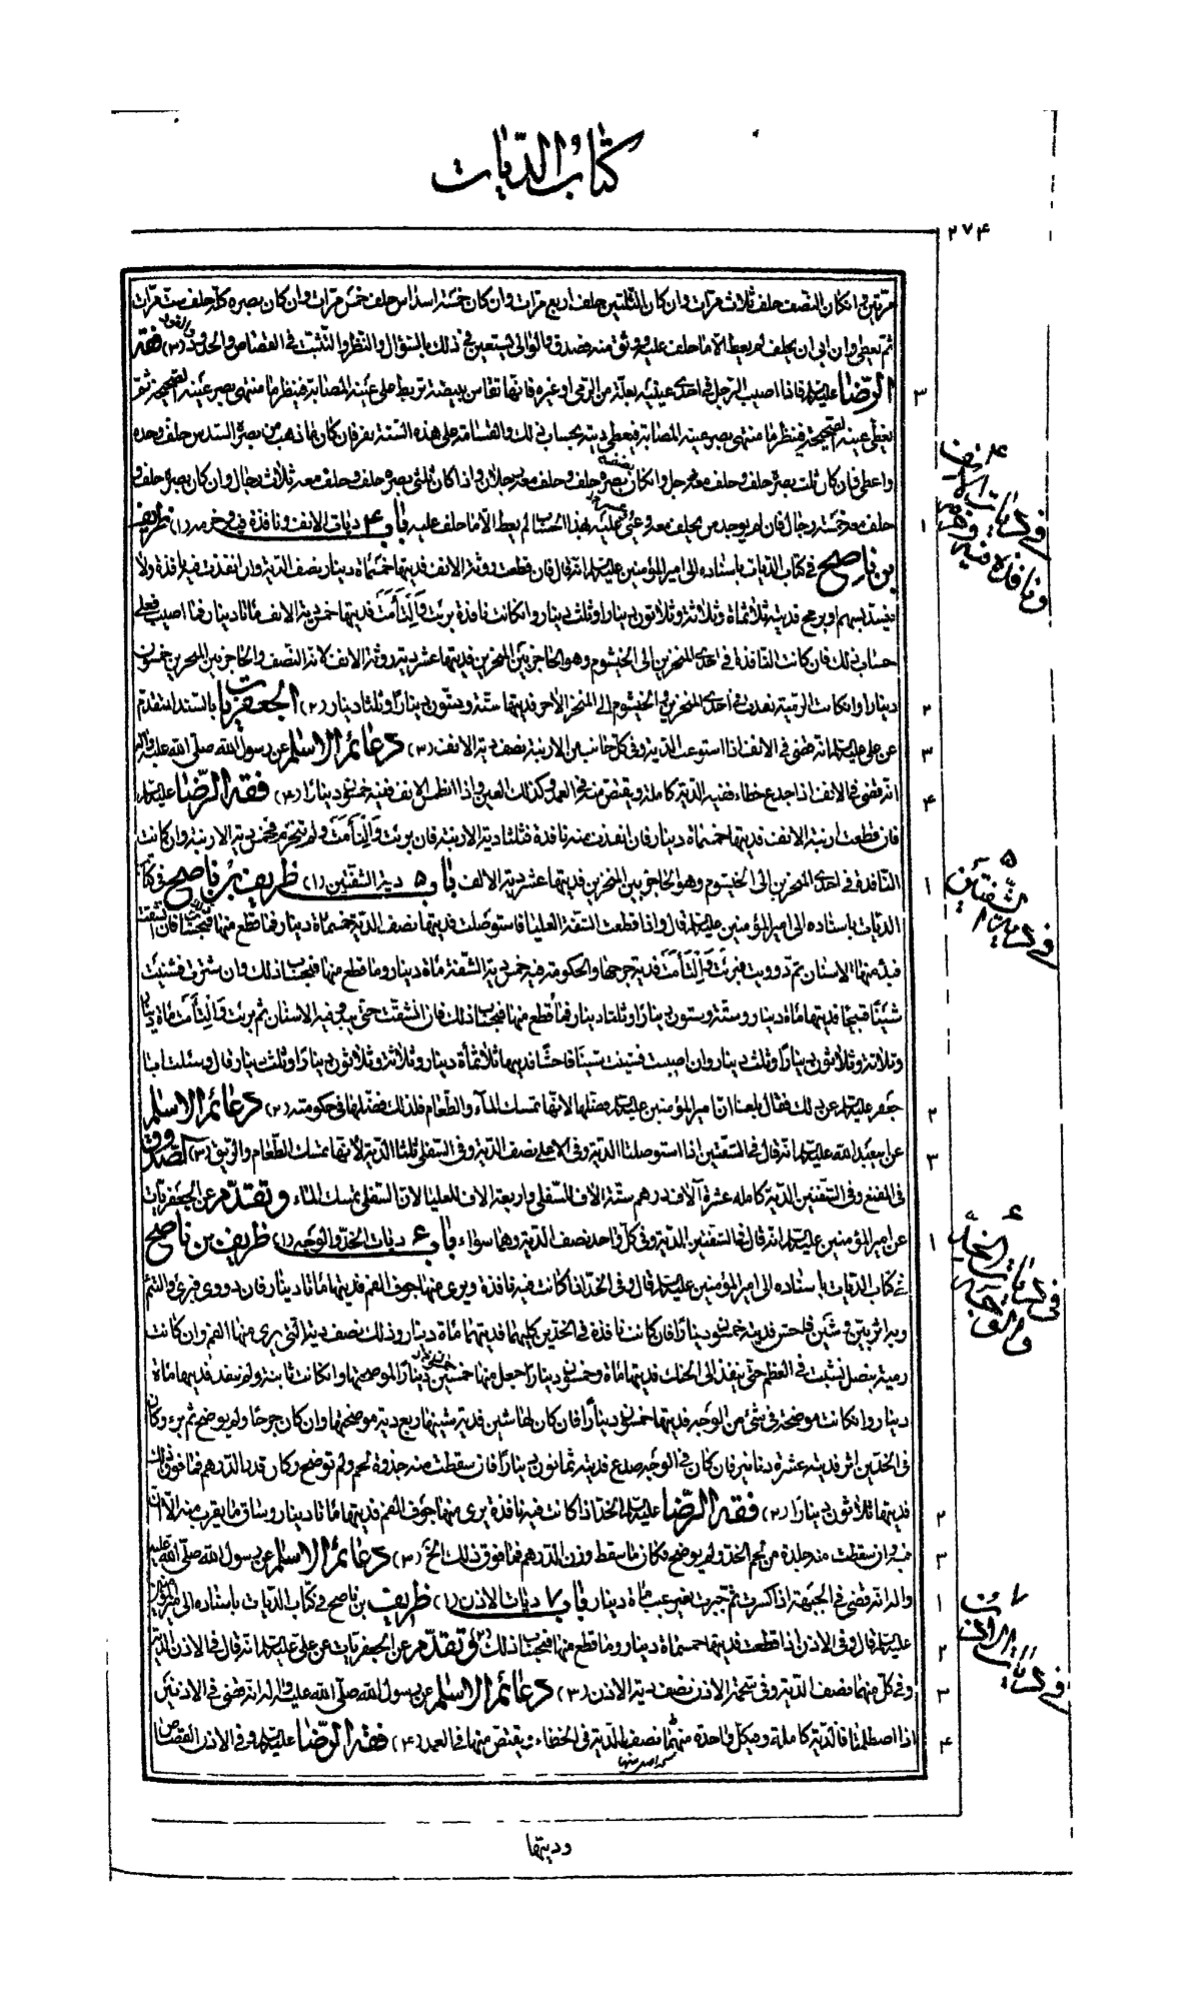 كتاب الديات
۲۷۴
مرتين وان كان النصف حلف ثلاث مرات وان كان الثلثين حلف اربع مرات وان كان خمسة اسداس حلف خمس مرات وان كان بصره كله حلف ست مرات
ثم يعطى وان ابى ان يحلف لم يعط الا ما حلف عليه ووثق منه بصدق والوالى يستعين فى ذلك بالسؤال والنظر والتثبت فى القصاص والحدود والقود (۳) فقه
۳ الرضا عليه السلام فاذا اصيب الرجل فى احدى عينيه بعلة من الرمى او غيره فانها تقاس ببيضة تربط على عينه المصابة فينظر ما منتهى بصر عينه الصحيحة ثم
يغطى عينه الصحيحة فينظر ما منتهى بصر عينه المصابة فيعطى ديته بحساب ذلك والقسامة على هذه الستة نفر فان كان ما ذهب من بصره السدس حلف وحده
واعطى فان كان ثلث بصره حلف وحلف معه رجل وان كان نصف بصره حلف وحلف معه رجلان واذا كان ثلثى بصره حلف وحلف معه ثلاث رجال وان كان بصره حلف و
۱ حلف معه خمسة رجال فان لم يوجد من يحلف معه وعمى عليه بهذا الحساب لم يعط الا ما حلف عليه باب ۴ ديات الانف ونافذة فيه وخرمه (۱) ظريف
بن ناصح فى كتاب الديات باسناده الى امير المؤمنين عليه السلام انه قال فان قطعت روثة الانف فديتها خمسمأة دينار نصف الدية وان انفذت فيه نافذة ولا
تنسد بسهم او برمح فديته ثلاثمأة وثلاثة وثلاثون دينارا وثلث دينار وان كانت نافذة برئت والتأمت فديتها خمس دية الانف مأتا دينار فما اصيب فعلى
حساب ذلك فان كانت النافذة فى احدى المنخرين الى الخيشوم وهو الحاجز بين المنخرين فديتها عشر دية روثة الانف لانه النصف والحاجز بين المنخرين خمسون
۲ دينارا وان كانت الرمية نفذت فى احدى المنخرين والخيشوم الى المنخر الاخر فديتها ستة وستون دينارا وثلثا دينار (۲) الجعفريات بالسند المتقدم
۳ عن على عليه السلام انه قضى فى الانف اذا استوعب الدية وفى كل جانب من الارنبة نصف دية الانف (۳) دعائم الاسلام عن رسول الله صلى الله عليه وآله
۴ انه قضى فى الانف اذا جدع خطاء ففيه الدية كاملة ويقتص منه فى العمد وكذلك العين واذا انطمس الانف ففيه خمسون دينارا (۴) فقه الرضا عليه السلام
فان قطعت ارنبة الانف فديتها خمسمأة دينار فان انفذت منه نافذة فثلثا دية الارنبة فان برئت والتأمت ولم تنخرم فخمس دية الارنبة وان كانت
۱ النافذة فى احدى المنخرين الى الخيشوم وهو الحاجز بين المنخرين فديتها عشر دية الانف باب ۵ دية الشفتين (۱) ظريف بن ناصح فى كتاب
الديات باسناده الى امير المؤمنين عليه السلام قال واذا قطعت الشفة العليا فاستوصلت فديتها نصف الدية خمسمأة دينار فما قطع منها فبحساب ذلك فان انشقت
فبدا منها الاسنان ثم دوويت فبرئت والتأمت فدية جرحها والحكومة فيه خمس دية الشفة مأة دينار وما قطع منها فبحساب ذلك وان شترت فشينت
شينا قبيحا فديتها مأة دينار وستة وستون دينارا وثلثا دينار فما قطع منها فبحساب ذلك فان انشقت حتى يبدو فيه الاسنان ثم برئت والتأمت مأة دينار
وثلاثة وثلاثون دينارا وثلث دينار وان اصيبت فشينت شينا فاحشا فديتها ثلاثمأة دينار وثلاثة وثلاثون دينارا وثلث دينار قال وسئلت ابا
۲ جعفر عليه السلام عن ذلك فقال بلغنا ان امير المؤمنين عليه السلام فضلها لانها تمسك الماء والطعام فلذلك فضلها فى حكومته (۲) دعائم الاسلام
۳ عن ابيعبد الله عليه السلام انه قال فى الشفتين اذا استوصلتا الدية وفى الاعلى نصف الدية وفى السفلى ثلثا الدية لانها تمسك الطعام والريق (۳) الصدوق
فى المقنع وفى الشفتين الدية كامله عشرة آلاف درهم ستة الاف للسفلى واربعة الاف للعليا لان السفلى تمسك الماء وتقدم عن الجعفريات
۱ عن امير المؤمنين عليه السلام انه قال فى الشفتين الدية وفى كل واحد نصف الدية وهما سواء باب ۶ ديات الخد والوجه (۱) ظريف بن ناصح
فى كتاب الديات باسناده الى امير المؤمنين عليه السلام قال وفى الخد اذا كانت فيه نافذة ويرى منها جوف الفم فديتها مأتا دينار فان دووى فبرئ والتئم
وبه اثر بين وشين فاحش فديته خمسون دينارا فان كانت نافذة فى الخدين كليهما فديتهما مأة دينار وذلك نصف دية التى يرى منها الفم وان كانت
رمية بنصل نشبت فى العظم حتى ينفذ الى الحنك فديتها مأة وخمسون دينارا جعل منها خمسين دينارا لموضحتها وان كانت ثاقبة ولم تنفذ فديتها مأة
دينار وان كانت موضحة فى شئ من الوجه فديتها خمسون دينارا فان كان لها شين فدية شينها ربع دية موضحتها وان كان جرحا ولم يوضح ثم برء وكان
فى الخدين اثر فديته عشرة دنانير فان كان فى الوجه صدع فديته ثمانون دينارا فان سقطت منه جذوة لحم ولم توضح وكان قدر الدرهم فما فوق ذلك
۲ فديتها ثلاثون دينارا (۲) فقه الرضا عليه السلام الخد اذا كانت فيه نافذة يرى منها جوف الفم فديتها مأتا دينار وساق ما يقرب منه الا ان
۳ فيه وان سقطت منه جلدة من لحم الخد ولم يوضح فكان ما سقط وزن الدرهم فما فوق ذلك الخ (۳) دعائم الاسلام عن رسول الله صلى الله عليه
۱ وآله انه قضى فى الجبهة اذا كسرت ثم جبرت بغير عيب مأة دينار باب ۷ ديات الاذن (۱) ظريف بن ناصح فى كتاب الديات باسناده الى امير المؤمنين
۲ عليه السلام قال وفى الاذن اذا قطعت فديتها خمسمأة دينار وما قطع منها فبحساب ذلك (۲) وتقدم عن الجعفريات عن على عليه السلام انه قال فى الاذن الدية
۳ وفى كل منهما نصف الدية وفى شحمة الاذن نصف دية الاذن (۳) دعائم الاسلام عن رسول الله صلى الله عليه وآله انه قضى فى الاذنين
۴ اذا اصطلمتا فالدية كاملة وفى كل واحدة منهما نصف الدية فى الخطاء ويقتص منها فى العمد (۴) فقه الرضا عليه السلام وفى الاذن القصاص
وديتها
۴ فى ديات الانف
ونافذة فيه وخرمه
۵ فى دية الشفتين
۶ فى ديات الخد
والوجه
۷ فى ديات الاذن